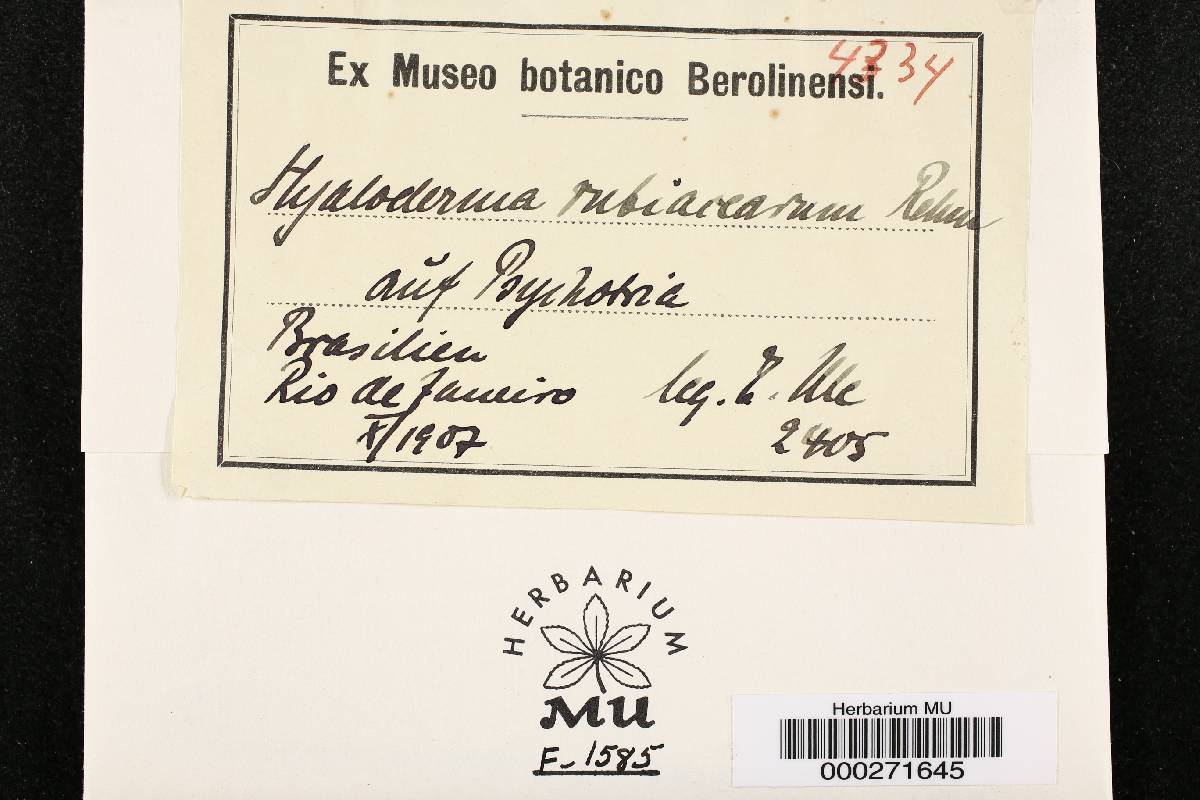 4734
Ex Museo botanico Berolinensi.
Hyaloderma rubiacearum Rehm
auf Psychotria
Brasilien
Rio de Janeiro leg. E. Ule
X/1907 2405
HERBARIUM
MU
F-1585
Herbarium MU
000271645